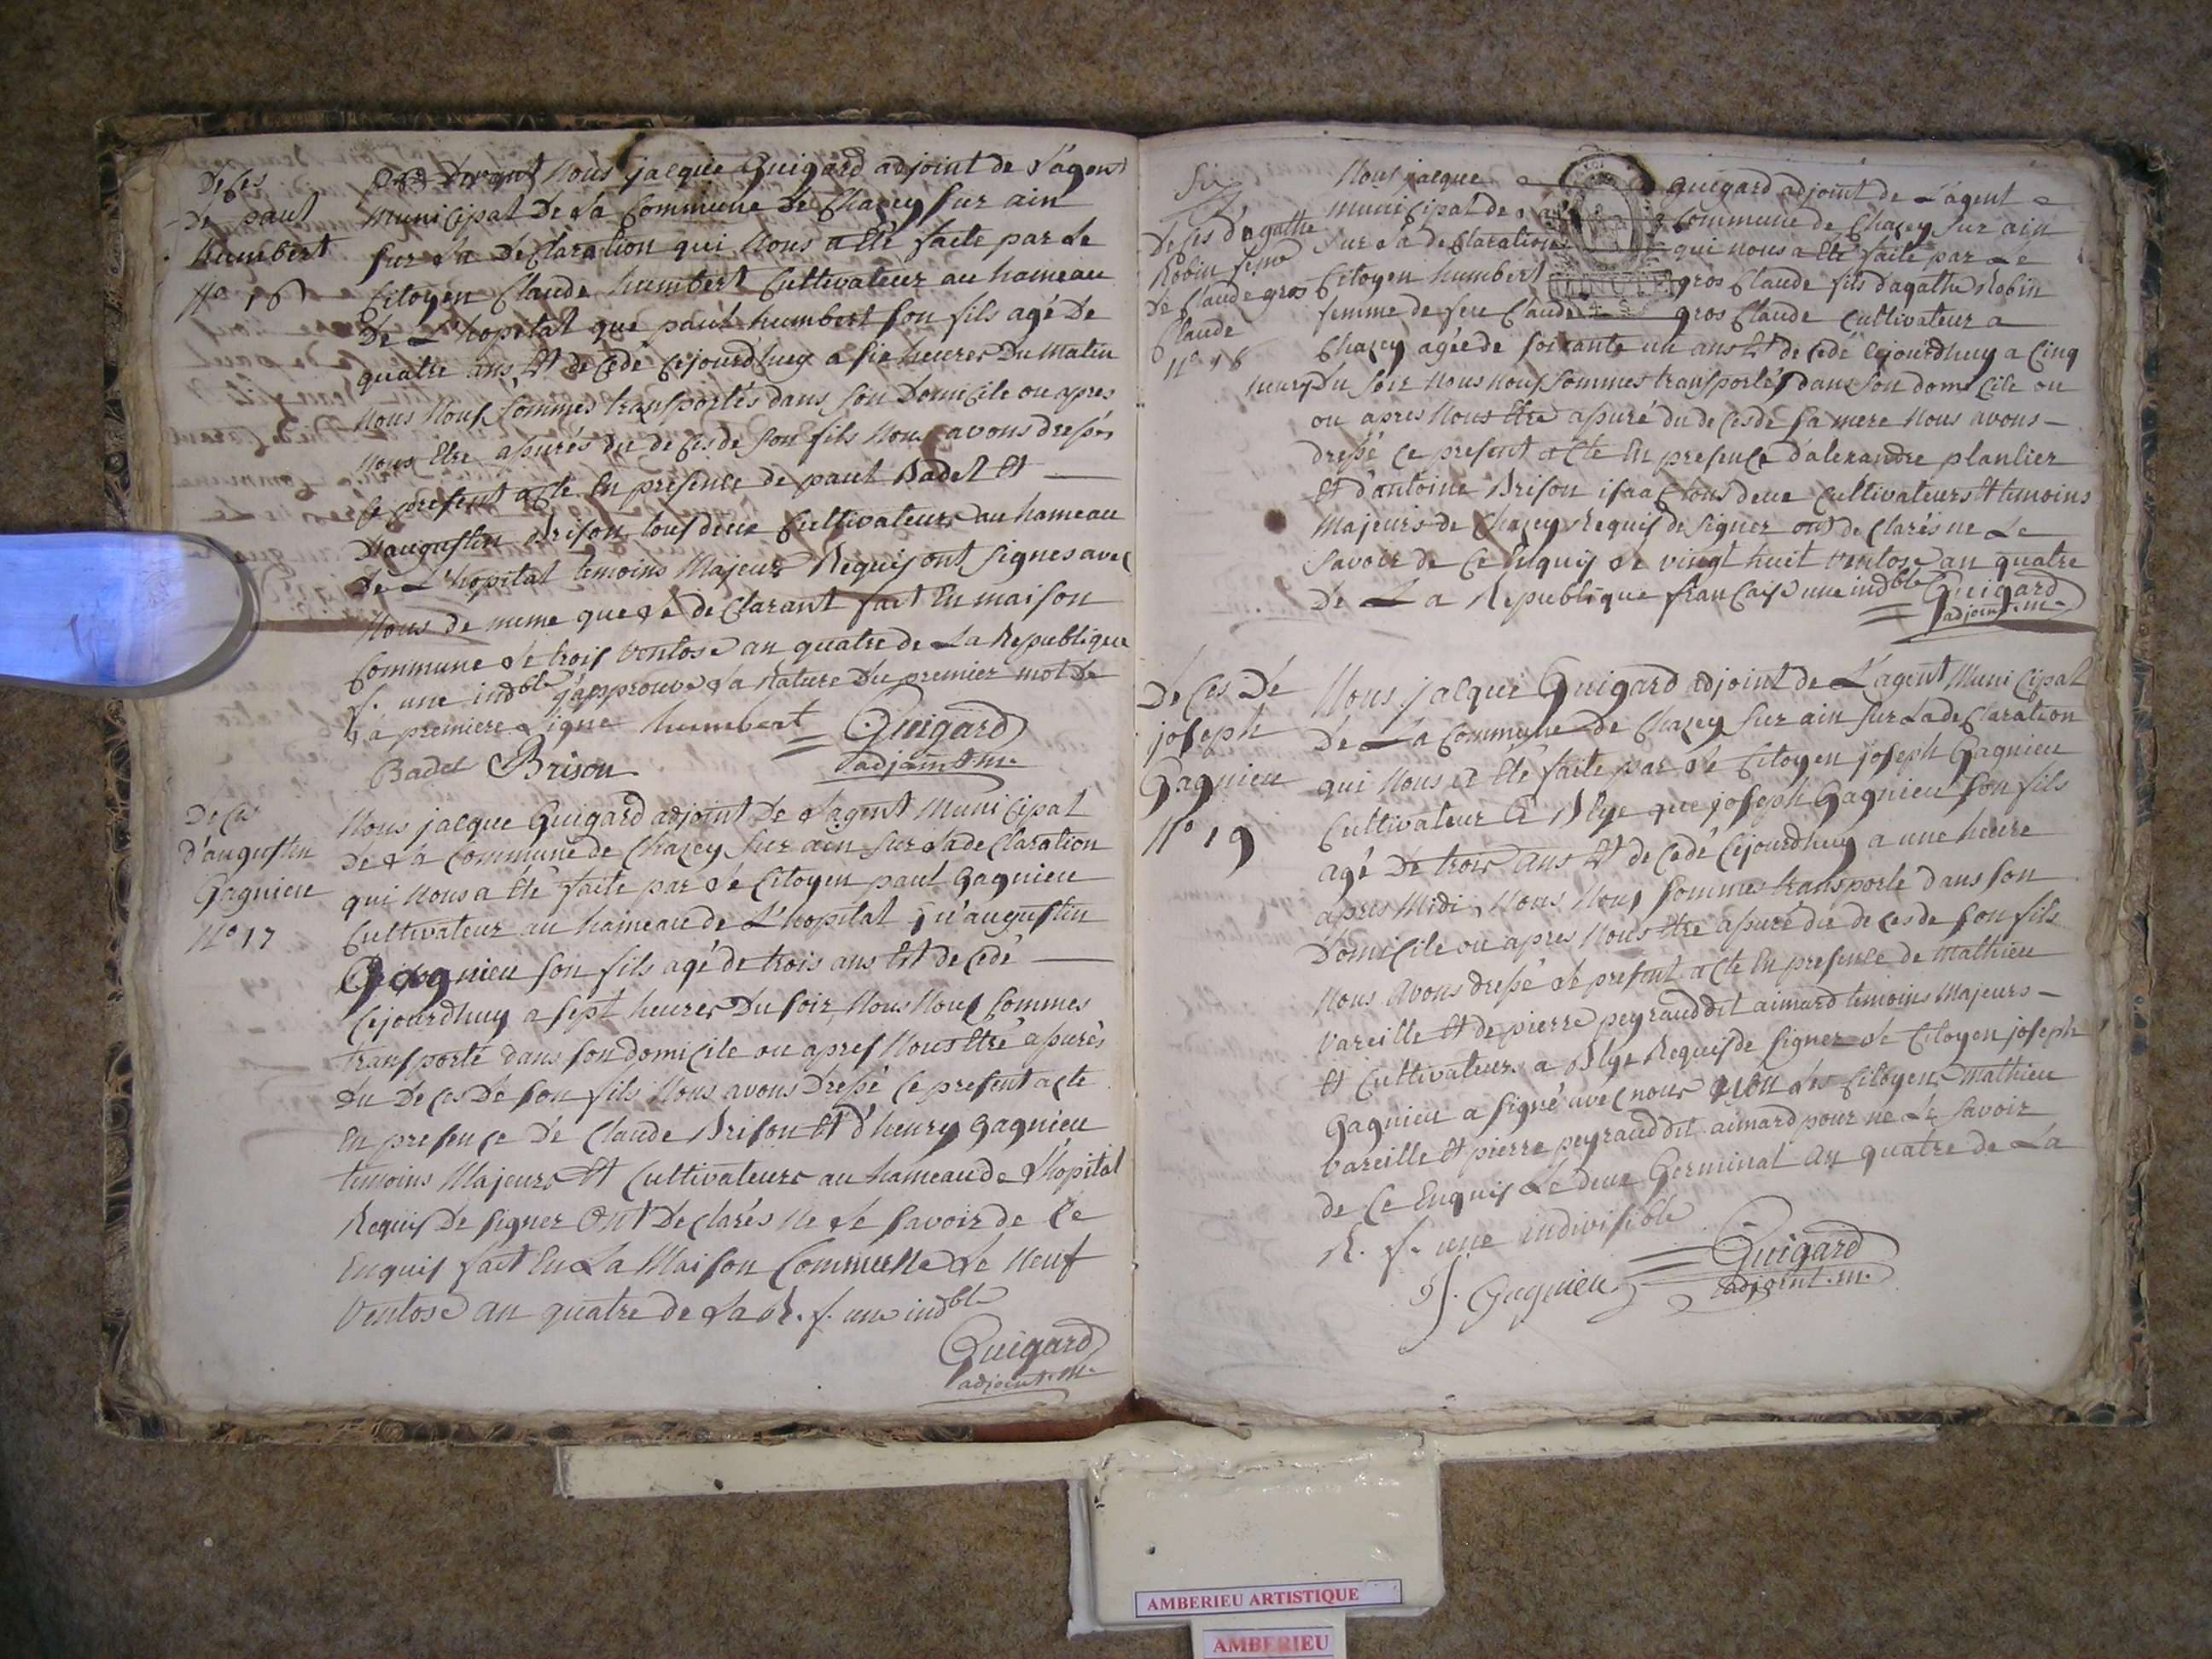 Deces
de paul
humbert
No 16
Par devant Nous jacque Guigard adjoint de L'agent
Municipal De La Commune De Chazey sur ain
sur La Declaration qui Nous a Eté faite par Le
Citoyen Claude humbert Cultivateur au hameau
De L'hopital que paul humbert son fils agé De
quatre ans Et decedé Cejourd'huy a six heures Du Matin
Nous Nous sommes transportés dans son Domicile ou apres
Nous Etre assurés du deces de son fils Nous avons dressés
le present acte En presence de paul Badet Et
D'augustin Brison tous deux Cultivateurs au hameau
De L'hopital temoins Majeurs Requis ont signes avec
Nous de meme que Le declarant fait En maison
Commune Le trois Ventose an quatre de La Republique
f. une indble j'approuve La Rature Du premier mot De
La premiere Ligne humbert Guigard
adjoint m.
Badet Brison
Deces
d'augustin
Gagnieu
No 17
Nous jacque Guigard adjoint De L'agent Municipal
De La Commune de Chazey sur ain sur La declaration
qui Nous a Eté faite par Le Citoyen paul Gagnieu
Cultivateur au hameau de L'hopital qu'augustin
Gagnieu son fils agé de trois ans Est decedé
Cejourdhuy a sept heures Du soir, Nous Nous sommes
transporté dans son domicile ou apres Nous Etre assurés
du Deces De son fils Nous avons Dressé Ce present acte
En presence De Claude Brison Et d'henry Gagnieu
temoins Majeurs Et Cultivateurs au hameau de L'hopital
Requis De signer Ont Declarés Ne Le savoir de Ce
Enquis fait En La Maison Commune Le Neuf
Ventose an quatre de La R. f. une indble
Guigard
adjoint m.
Deces d'agathe
Robin feme
De Claude gros
Claude
No 18
Nous jacque guigard adjoint de L'agent
municipal de La Commune de Chazey sur ain
sur La declaration qui nous a Eté faite par Le
Citoyen humbert gros Claude fils d'agathe Robin
femme de feu Claude gros Claude Cultivateur a
Chazey agée de soixante un ans Et decedé Cejourdhuy a Cinq
heures Du soir Nous nous sommes transportés dans son domicile ou
ou apres Nous Etre assuré du deces de sa mere Nous avons
dressé Ce present acte En presence d'alexandre plantier
Et d'antoine Brison isaac tous deux Cultivateurs Et temoins
Majeurs de Chazey Requis de signer ont declarés ne Le
savoir de Ce Enquis Le vingt huit Ventose an quatre
De La Republique francaise une indble Guigard
adjoint m.
Deces De
joseph
Gagnieu
No 19
Nous jacque Guigard adjoint de L'agent Municipal
De La Commune de Chazey sur ain sur La declaration
qui Nous a Eté faite par Le Citoyen joseph Gagnieu
Cultivateur a Blye que joseph Gagnieu son fils
agé De trois ans Et decedé Cejourdhuy a une heure
apres Midi, Nous Nous sommes transporté dans son
Domicile ou apres Nous Etre assuré du deces de son fils
Nous Avons dressé Le present acte En presence de Mathieu
Vareille Et de pierre peyraud dit aimard temoins Majeurs
Et Cultivateurs a Blye Requis de signer Le Citoyen joseph
Gagnieu a signé avec nous non Les Citoyens Mathieu
Vareille Et pierre peyraud dit aimard pour ne Le savoir
de Ce Enquis Le deux Germinal an quatre de La
R. f. une indivisible
J. Gagnieu Guigard
adjoint. m.
AMBERIEU ARTISTIQUE
AMBERIEU